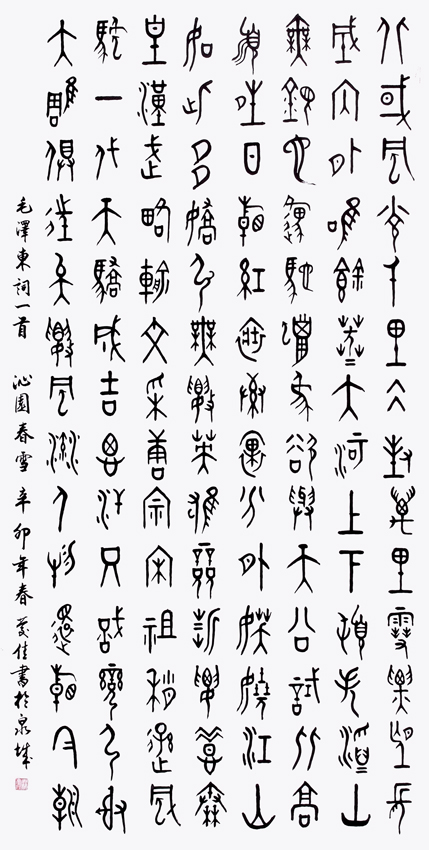 北國風光千里冰封萬里雪飄望長
城內外惟餘莽莽大河上下頓失滔滔山
舞銀蛇原馳蠟象欲與天公試比高
須晴日看紅裝素裹分外妖嬈江山
如此多嬌引無數英雄競折腰惜秦
皇漢武略輸文采唐宗宋祖稍遜風
騷一代天驕成吉思汗只識彎弓射
大雕俱往矣數風流人物還看今朝
毛澤東詞一首 沁園春雪 辛卯年春 佳書於泉城